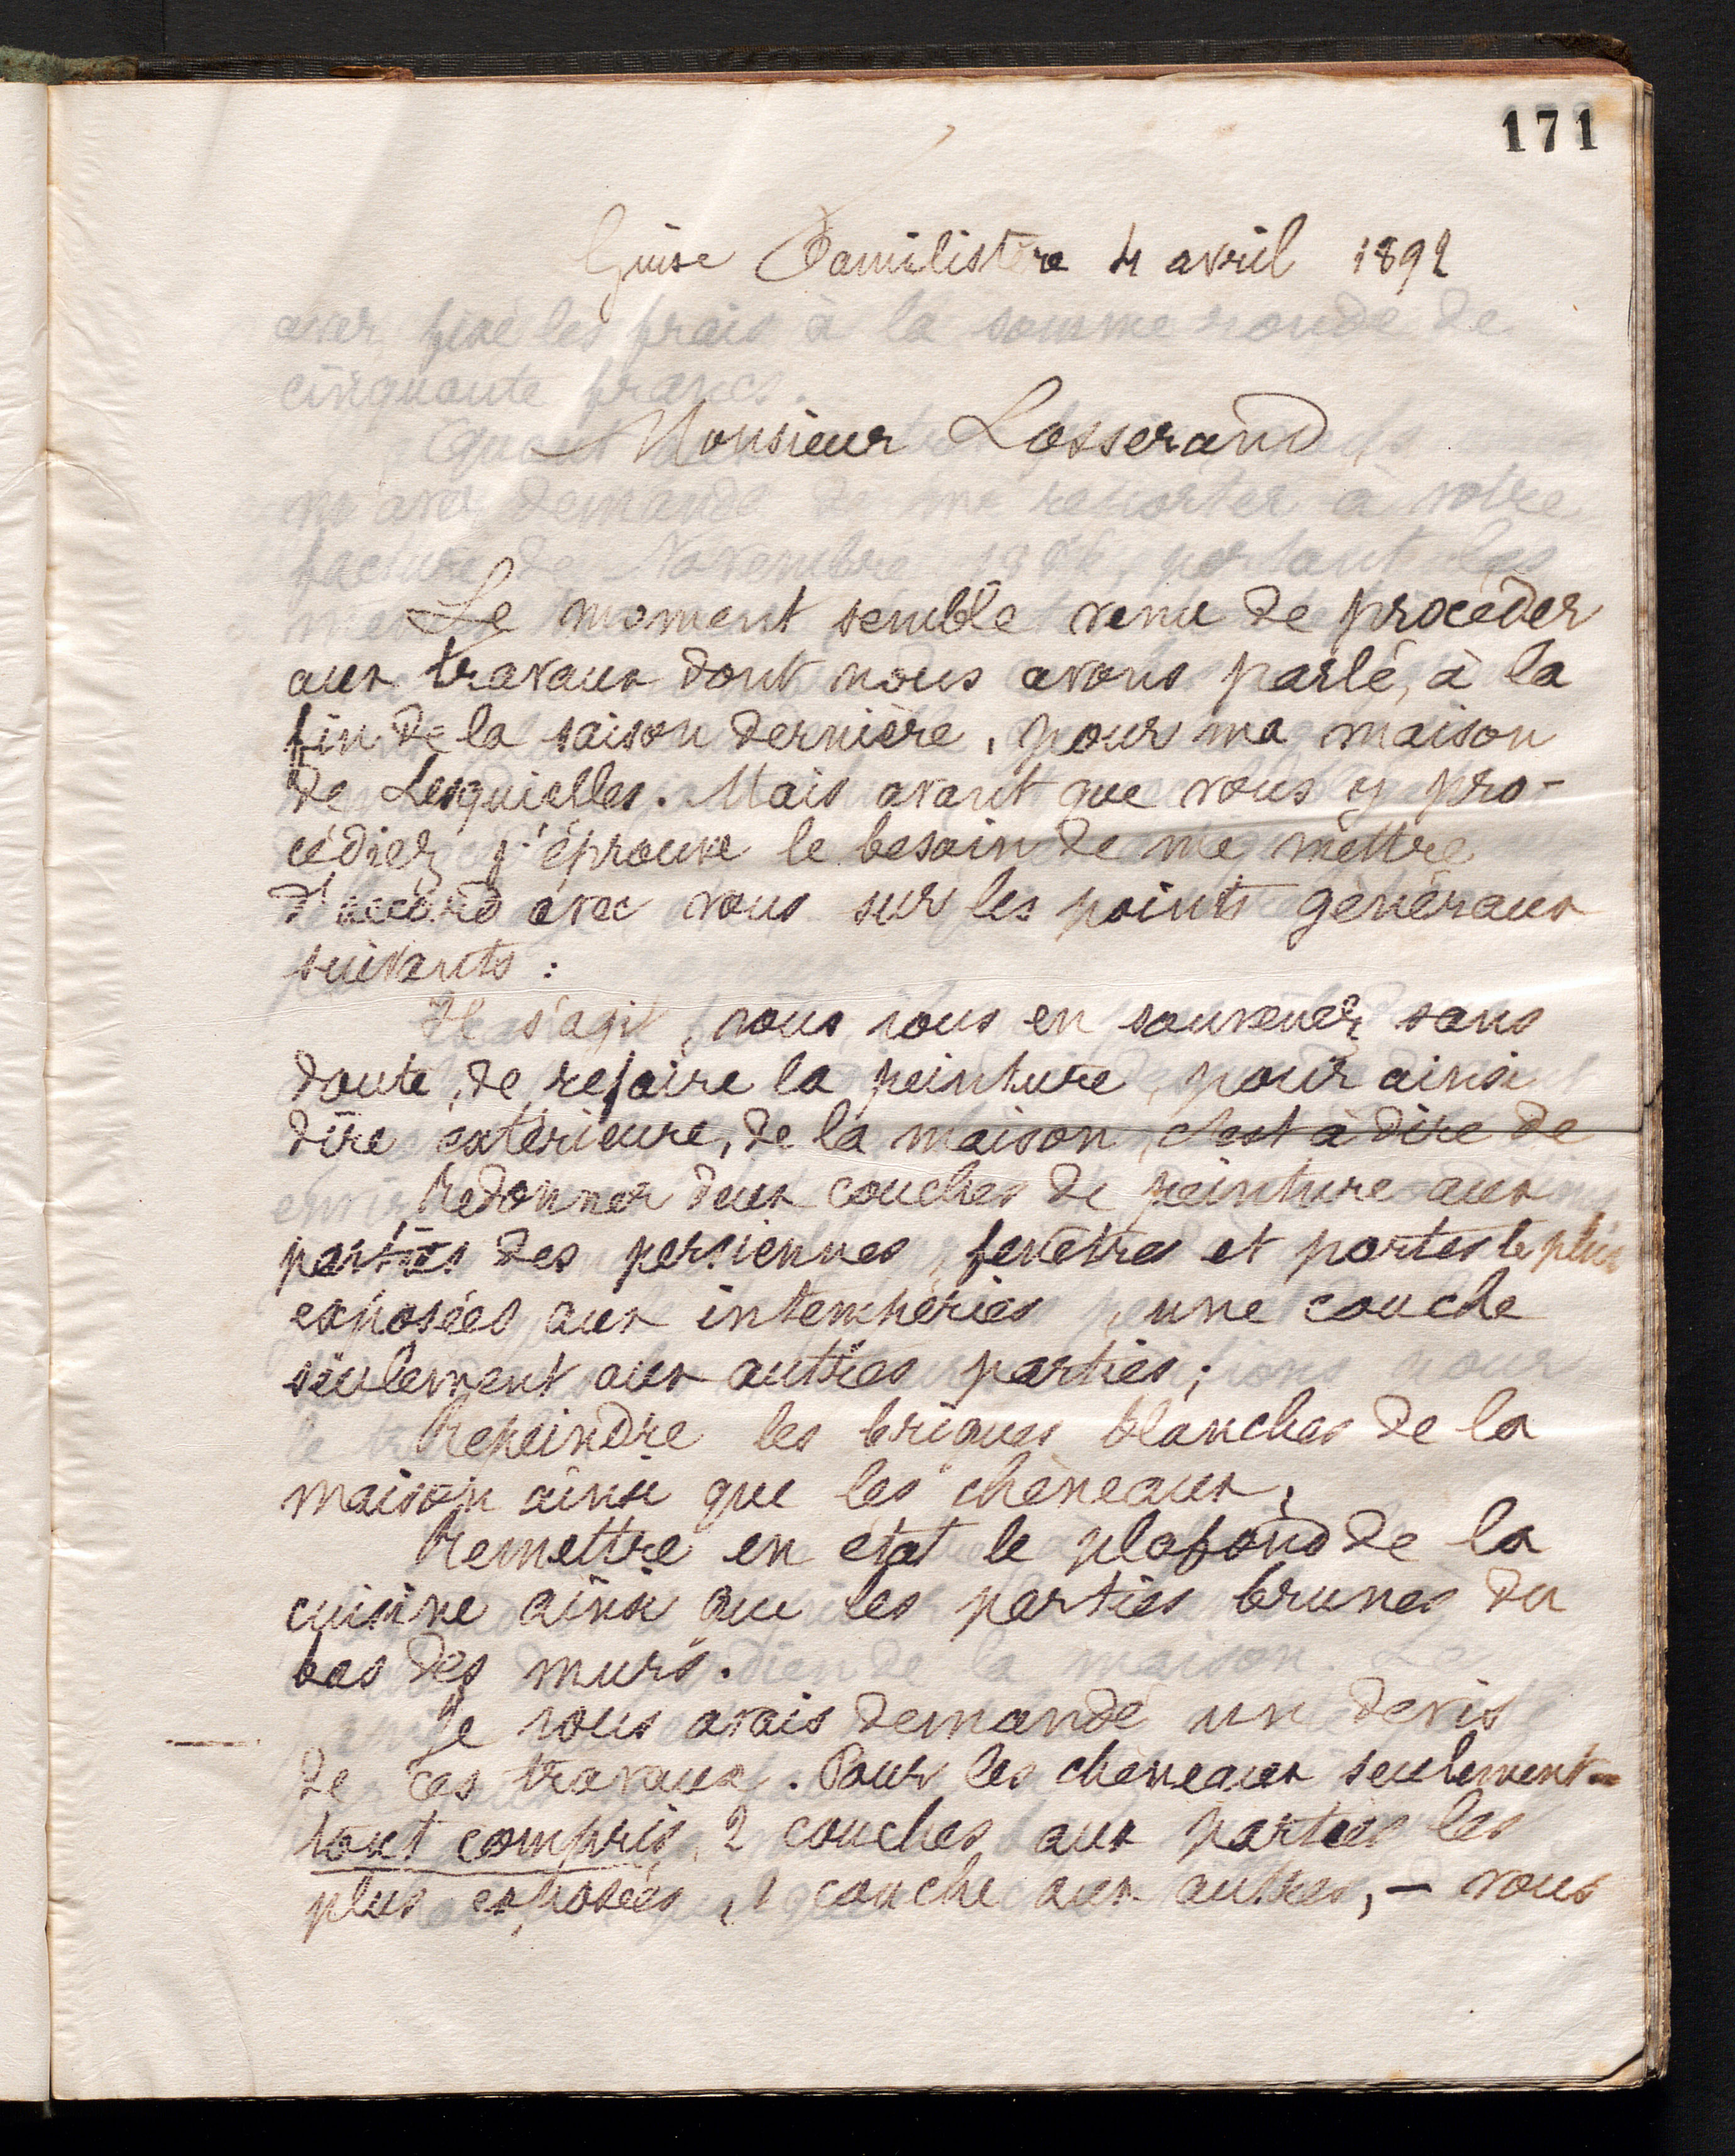 171
Guise Familistère 4 avril 1892
avez fixé les frais à la somme ronde de
cinquante francs.
Monsieur Losserand
Quant
m'avez demandé de me reporter à votre
facture de Novembre portant les
Le moment semble venu de procéder
aux travaux dont nous avons parlé, à la
fin de la saison dernière, pour ma maison
de Lesquielles. Mais avant que vous y pro-
cédiez j'éprouve le besoin de me mettre
d'accord avec vous sur les points généraux
suivants :
Il s'agit, vous vous en souvenez sans
doute, de refaire la peinture, pour ainsi
dire extérieure, de la maison, c'est à dire de
Redonner deux couches de peinture aux
parties des persiennes, fenêtres et portes le plus
exposées aux intempéries, une couche
seulement aux autres parties;
Repeindre les briques blanches de la
maison ainsi que les chèneaux,
Remettre en état le plafond de la
cuisine ainsi que les parties brunes du
bas des murs.
Je vous avais demandé un devis
de ces travaux. Pour les chèneaux seulement -
tout compris, 2 couches aux parties les
plus exposées, 1 couche aux autres, - vous